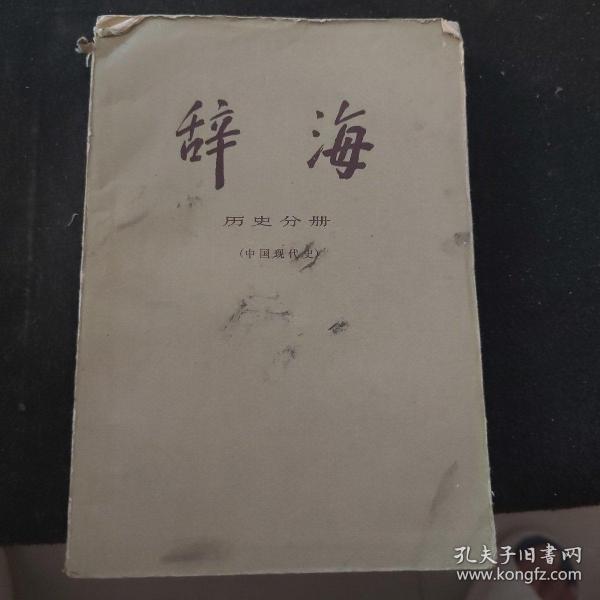 辞海
历史分册
(中国现代史)
孔夫子旧书网
www.kongfz.com